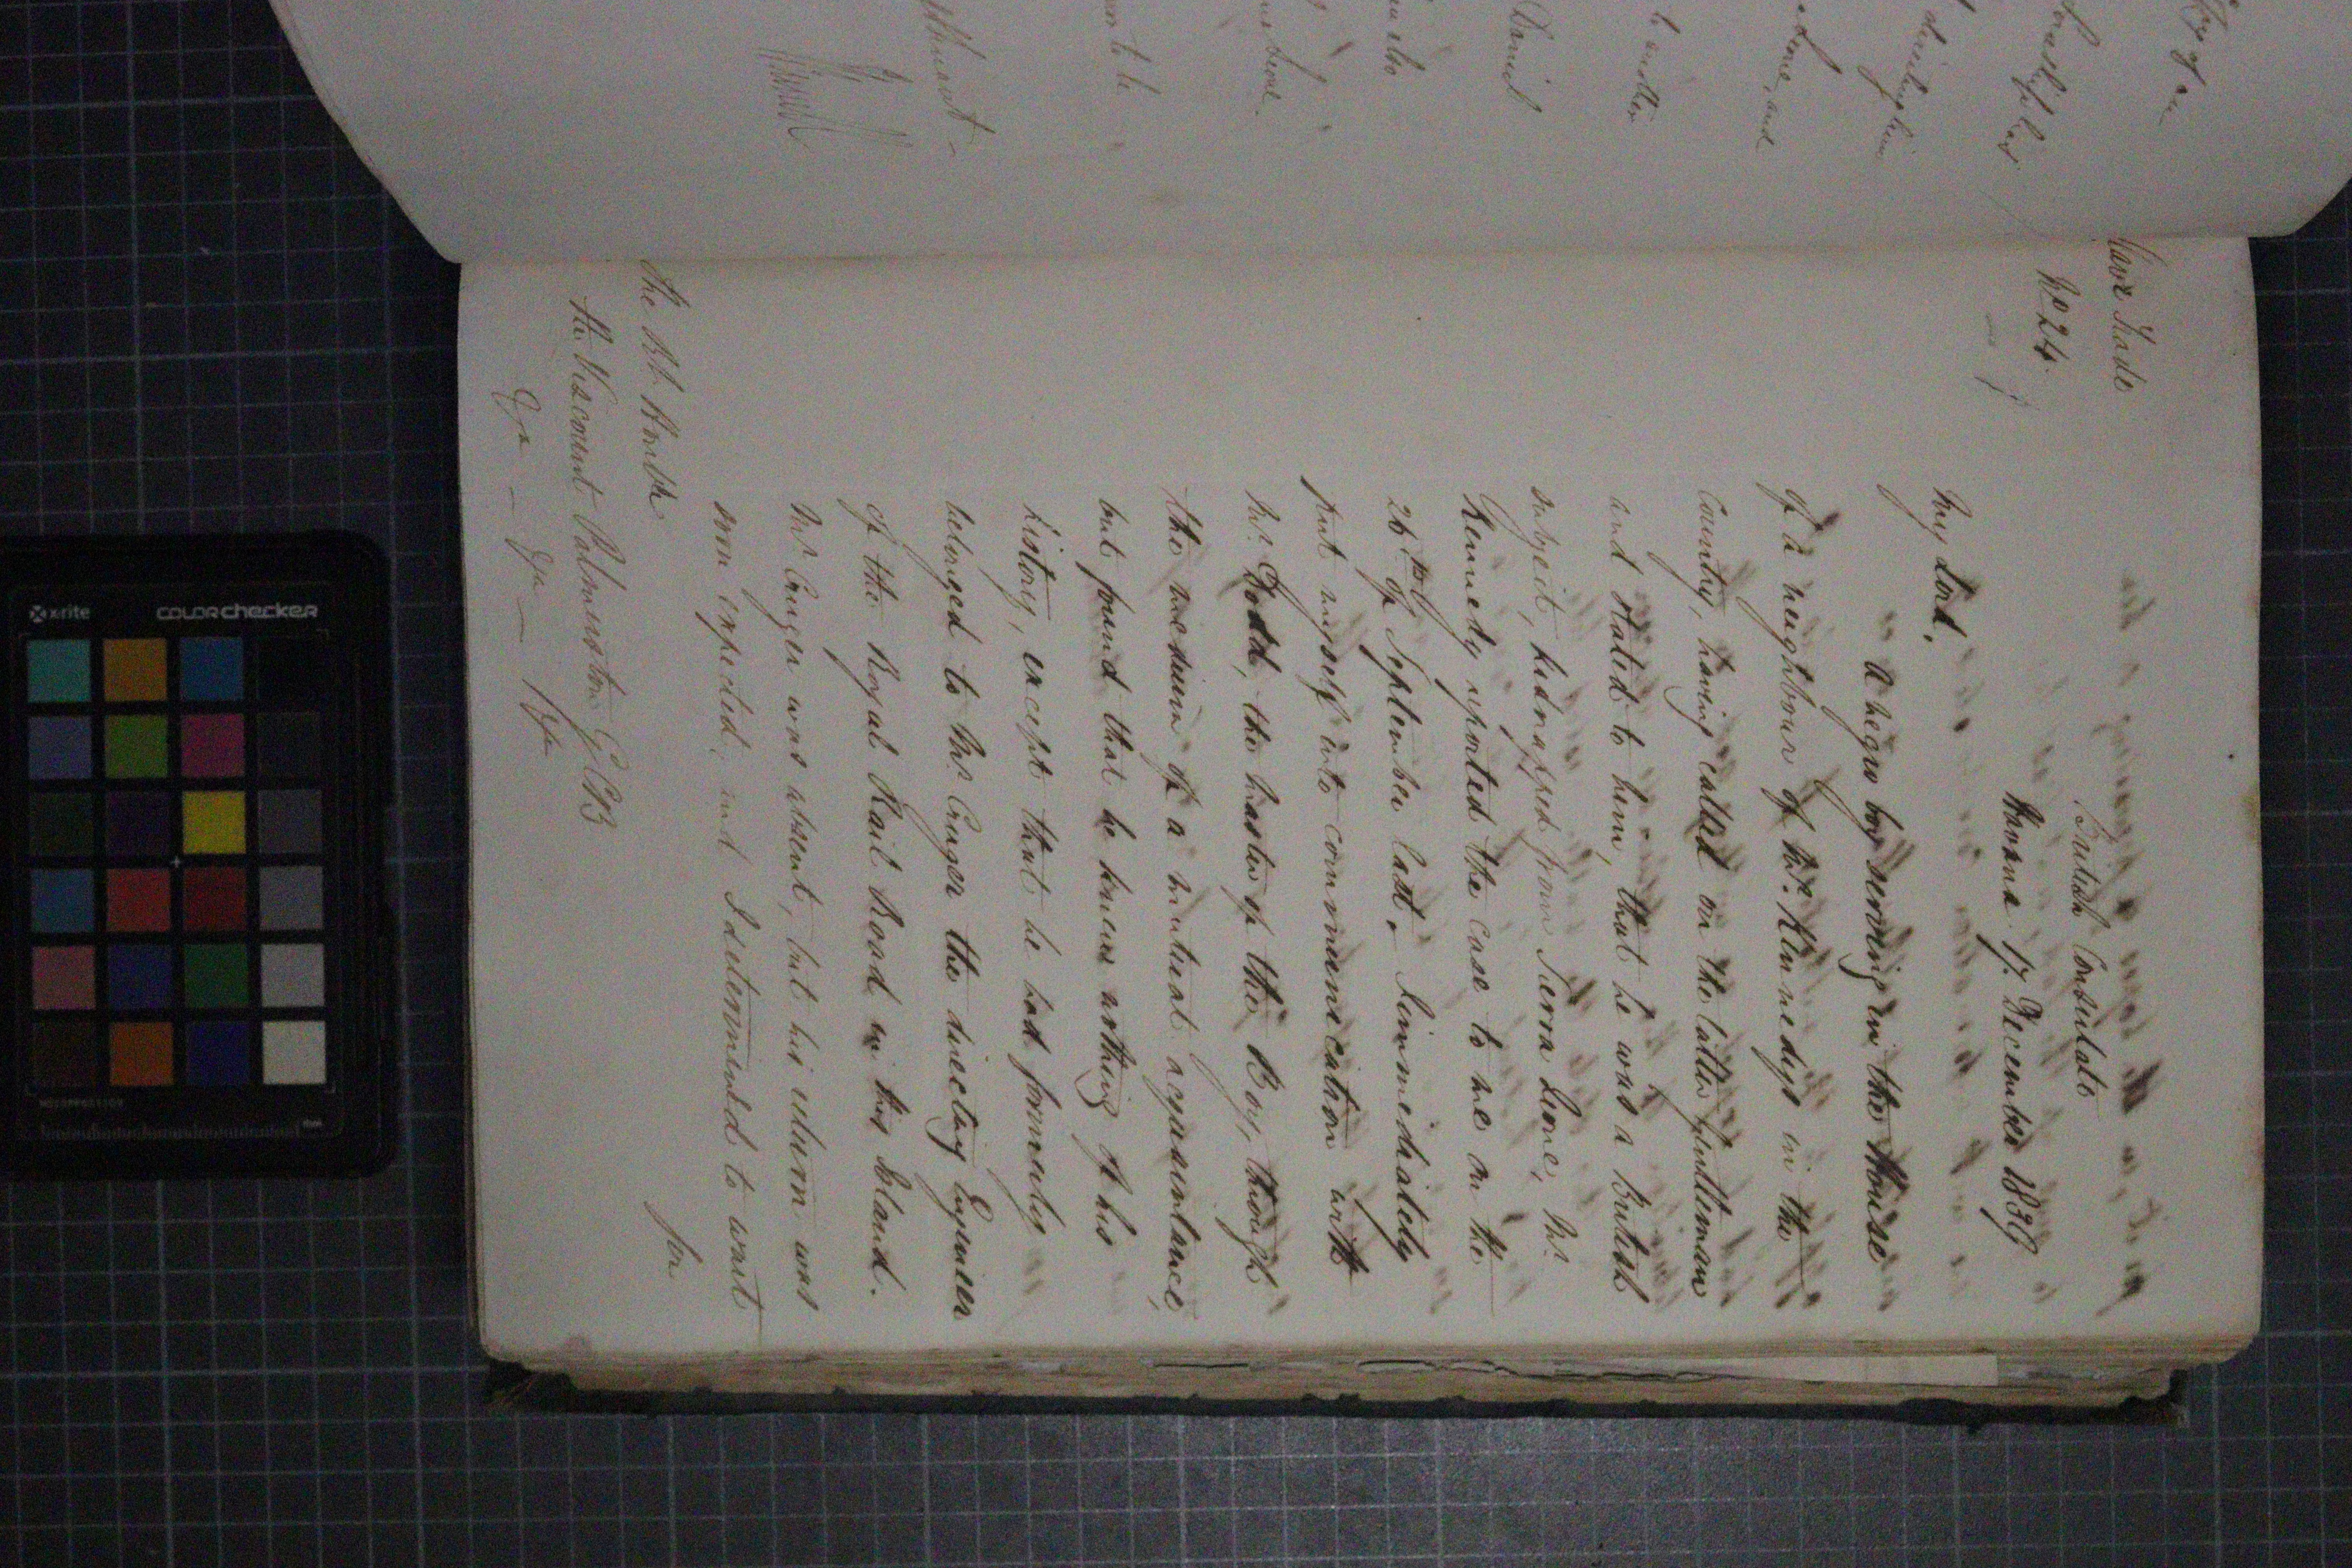 Slave Trade
No 24.
British Consulate
Havana 17. December 1839
My Lord,
A negro boy serving in the House
of a neighbour of Mr. Kennedys in the
Country, having called on the latter gentleman
and stated to him, that he was a British
subject, kidnapped from Sierra Leone, Mr.
Kennedy reported the case to me on the
26th of September last. I immediately
put myself into communication with
Mr. Dodd, the master of the Boy, through
the medium of a mutual acquaintance,
but found that he knew nothing of his
history, except that he had formerly
belonged to Mr. Cruger the directing Engineer
of the Royal Rail Road in this Island.
Mr Cruger was absent, but his return was
soon expected, and I determined to wait
for
The Rt. Honble
The Viscount Palmerston GCB
x-rite
colorchecker